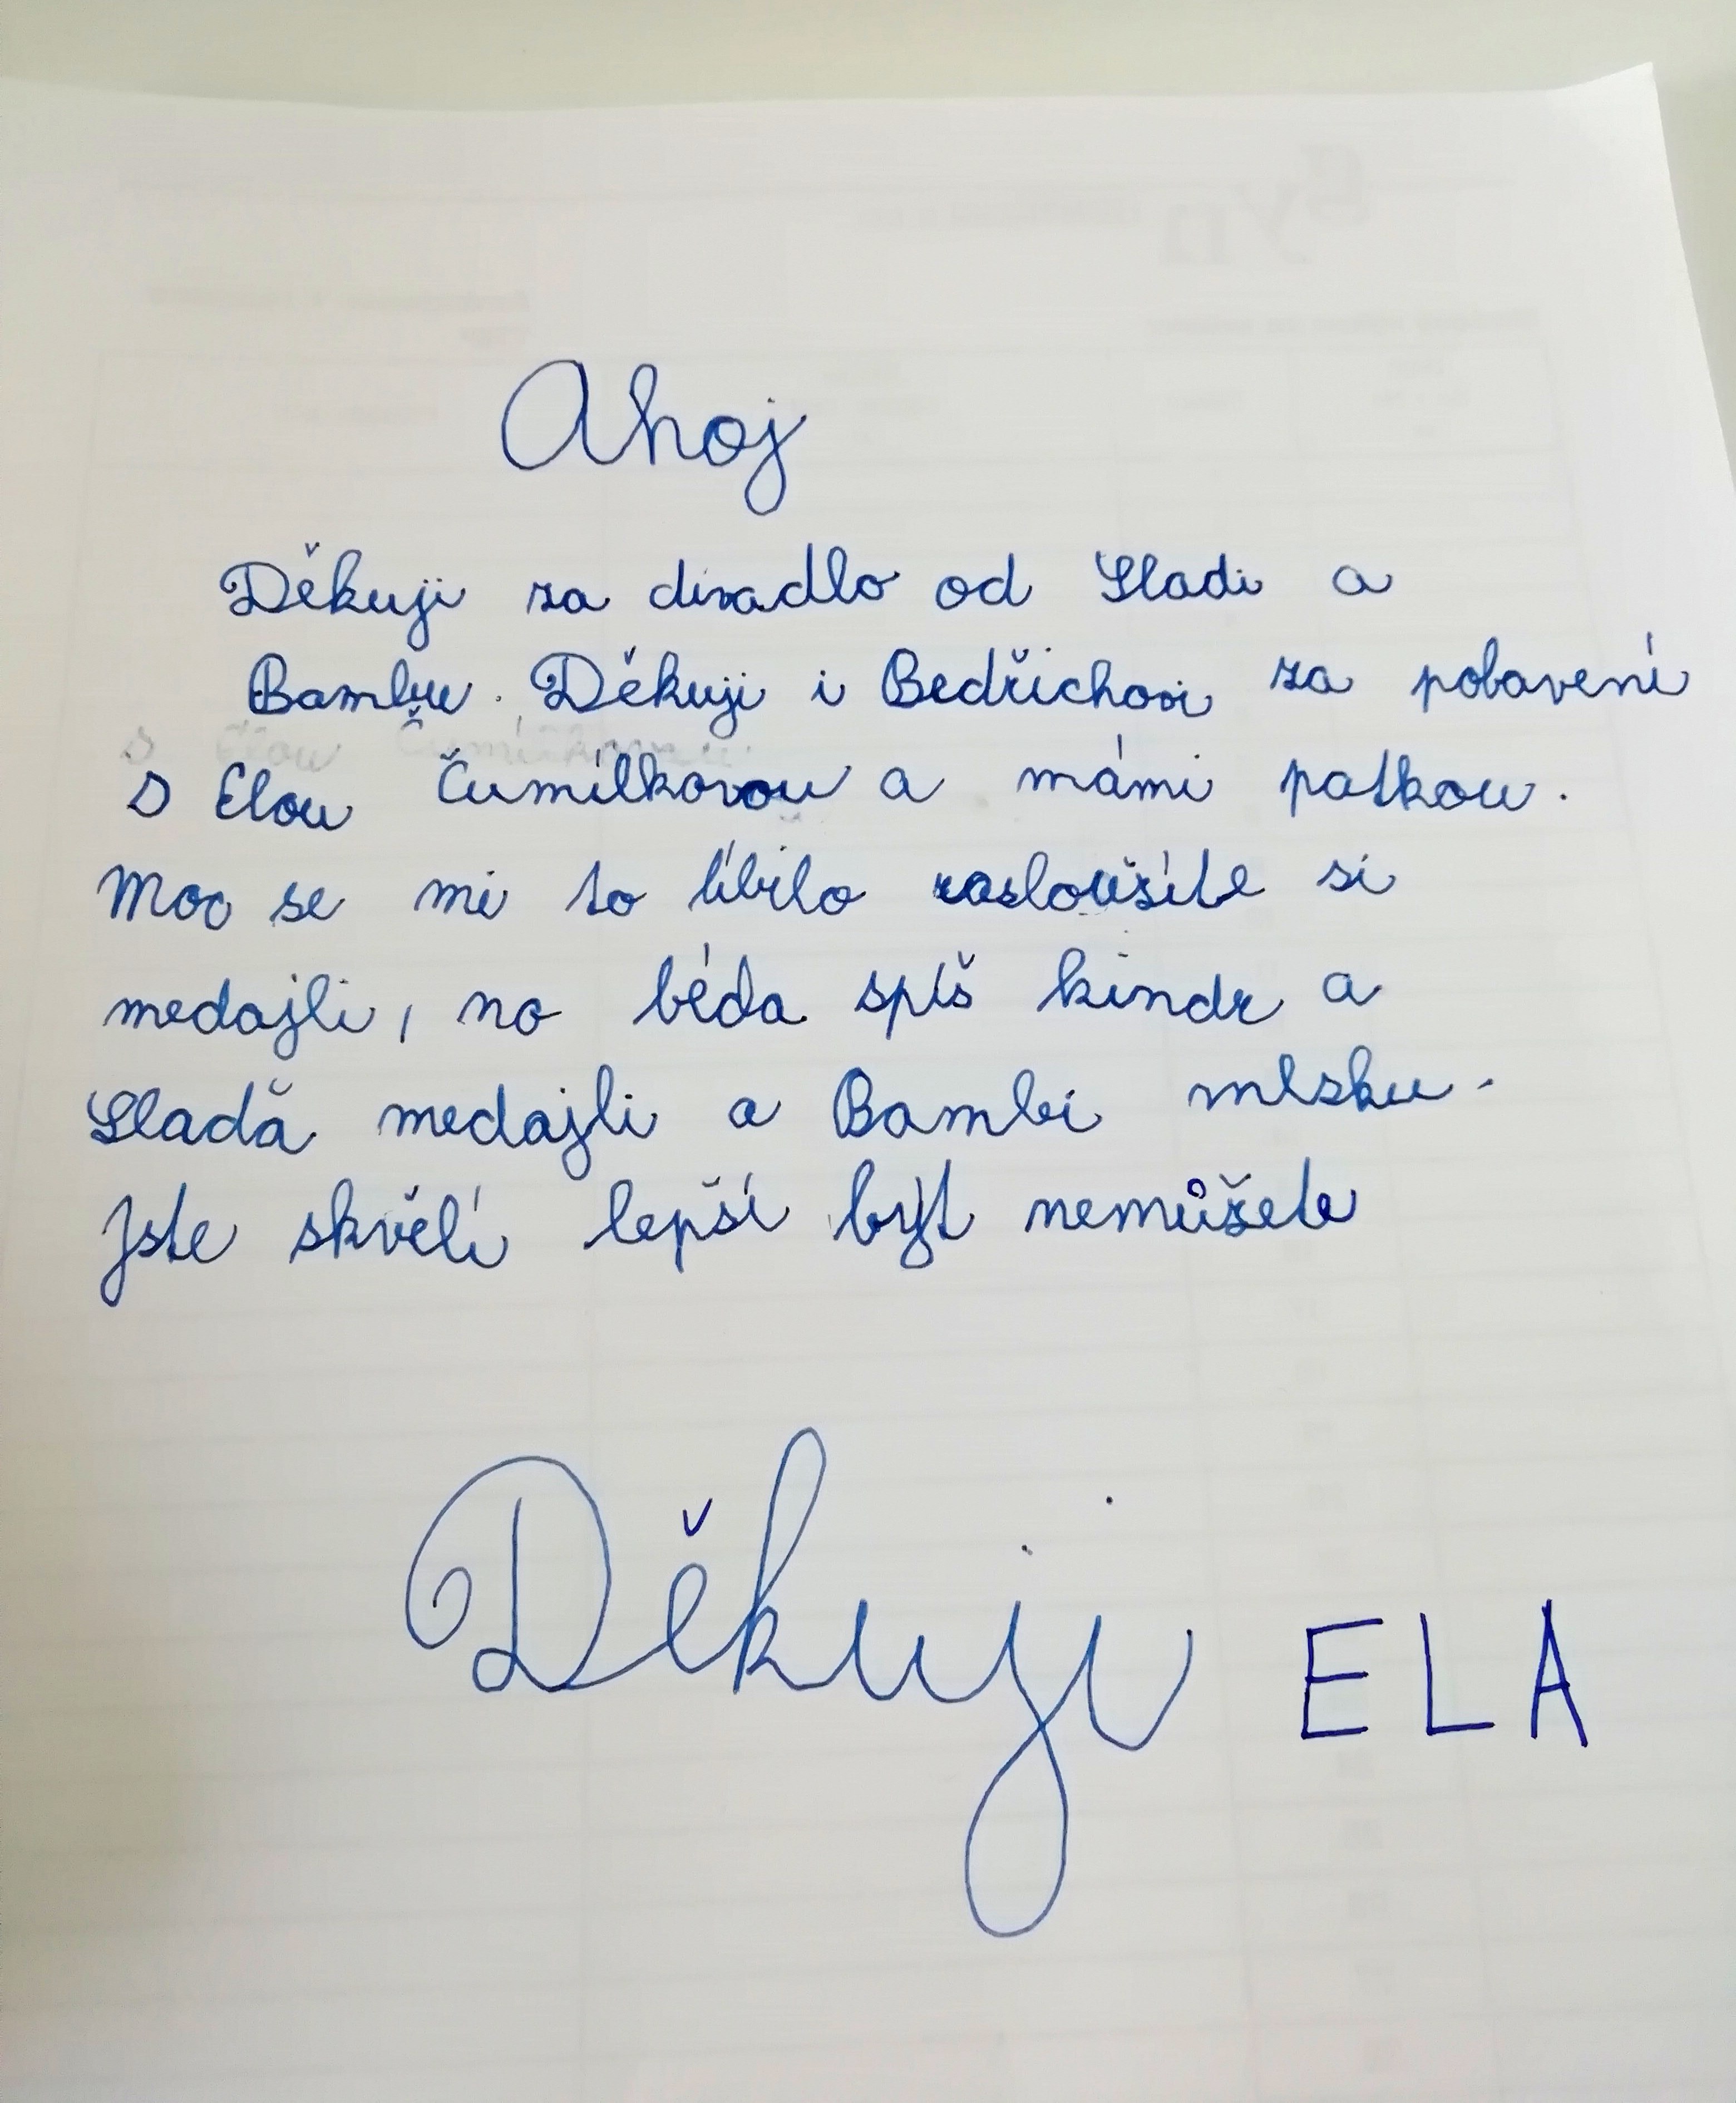 Ahoj
Děkuji za divadlo od Sladi a
Bambu. Děkuji i Bedřichovi za pobavení
s Elou Čumílkovou a mámi patkou.
Moc se mi to líbilo zasloužíte si
medajli, no béda spíš kindr a
Sladă medajli a Bambi mlsku.
Jste skvělí lepší být nemůžete
Děkuji ELA